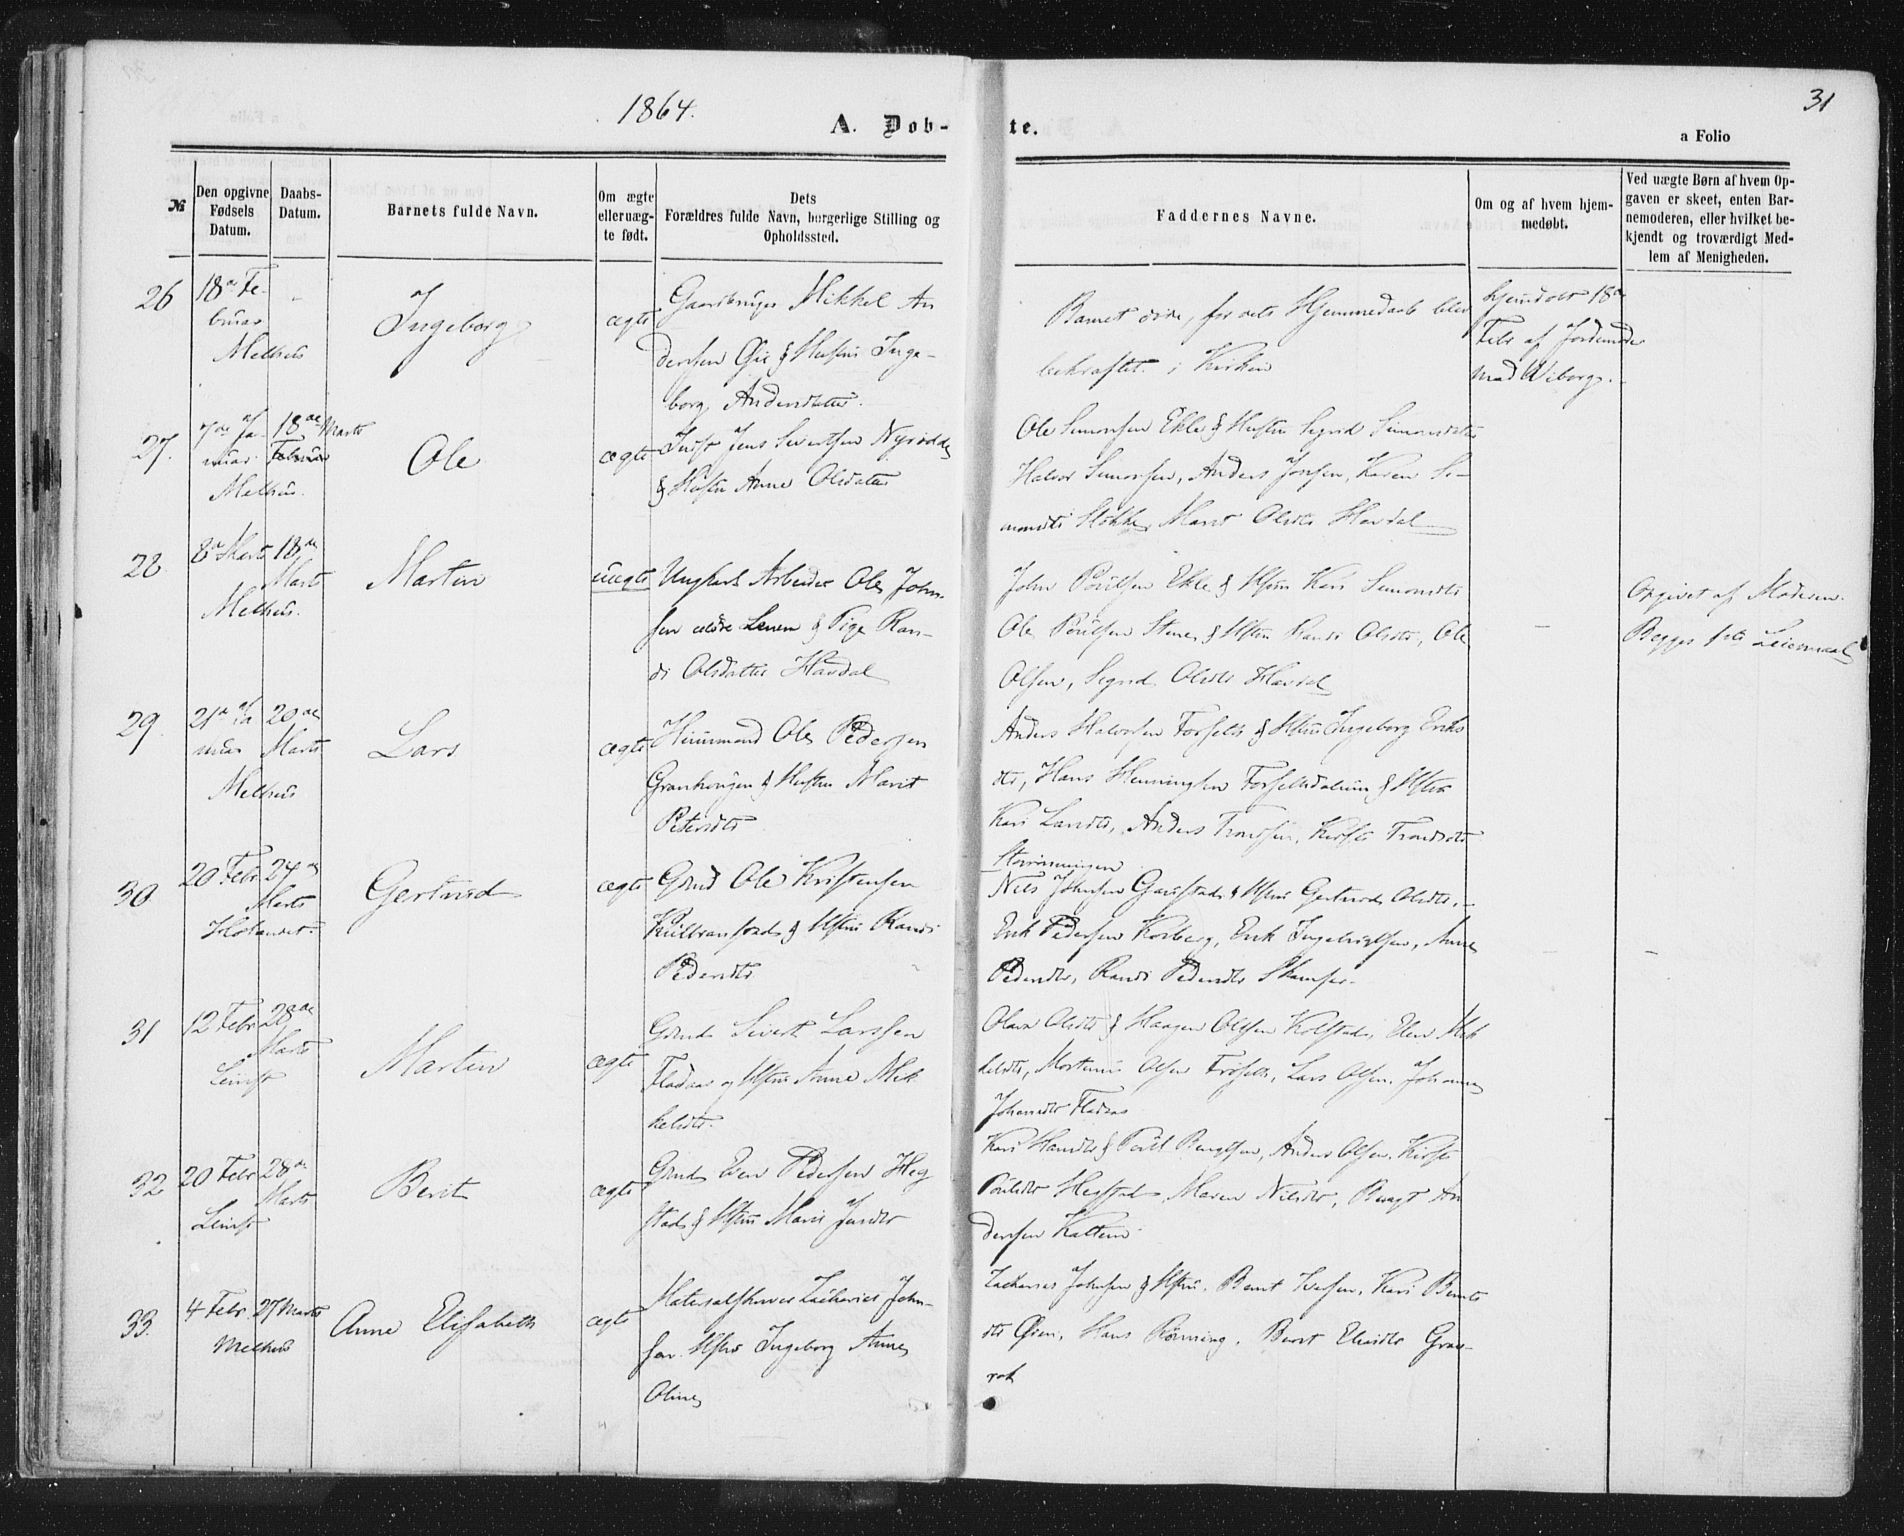 1864.
31
A. Døb-
te.
a Folio
№
Den opgivne Fødsels Datum.
Daabs-Datum.
Barnets fulde Navn.
Om ægte eller uæg-te født.
Dets Forældres fulde Navn, borgerlige Stilling og Opholdssted.
Faddernes Navne.
Om og af hvem hjem-medøbt.
Ved uægte Børn af hvem Op-gaven er skeet, enten Bar-nemoderen, eller hvilket be-kjendt og troværdigt Med-lem af Menigheden.
26
18de Fe-
bruar
Melhus
Ingeborg
ægte
Gaardbruger Mikkel An
dersen Øie & Hustru Inge-
borg Andersdatter.
Barnet døde, før dets Hjemmedaab blev
bekræftet i Kirken
hjemdøbt 18de
Febr af Jordemoder
Mad Wiborg.
27.
7de Ja-
nuar
Melhus.
18de Marts
Februar
Ole
ægte
Inds Jens Sivertsen
& Hustru Anne Olsdatter
Ole Simonsen Ekle & Hustru Sigrid Simonsdatter
Halvor Simonsen, Anders Jonsen, Karen Si-
monsdtr Stokke, Marit Olsdtr Havdal
28
8de Marts
Melhus.
18de
Marts
Martin
uægte
Ungkarl Arbeider Ole John-
sen & Pige Ran-
di Olsdatter Havdal
John Poulsen Ekle & Hstru Kari Simonsdtr
Ole Poulsen Stene & Hstru Randi Olsdtr, Ole
Olsen, Sigrid Olsdtr Havdal
Opgivet af Moderen.
Begges 1ste Leiermaal
29.
21de Ja
nuar
Melhus
20de
Marts
Lars
ægte
Huusmand Ole Pedersen
& Hustru Marit
Petersdtr
Anders Halvorsen Forseth & Hstru Ingeborg Eriks
dtr, Hans Henningsen & Hstru
Kari Larsdtr, Anders Trondsen, Kirsti Trondsdtr
30
20 Febr
Hølandet.
24de
Marts
Gertrud
ægte
Grmd Ole Kristensen
& Hstru Randi
Pedersdtr
Nils Johnsen & Hstru Gertrud Olsdtr,
Erik Pedersen Korberg, Erik Ingebrigtsen, Anne
Pedersdtr, Randi Pedersdtr
31
12 Febr
Leinst
28de
Marts
Martin
ægte
Grmd Sivert Larssen
Fladaas og Hstru Anne Mik
kelsdtr.
Olava Olsdtr & Haagen Olsen Kolstad, Elen Mik
kelsdtr, Morten Olsen, Lars Olsen, Johanna
Johansdtr Fladaas
32
20 Febr
Leinst
28de
Marts
Berit
ægte
Grmd Even Pedersen Heg
stad & Hstru Marit Jensdtr
Kari Hansdtr & Poul Bengtsen, Anders Olsen, Kirsti
Poulsdtr Hegstad, Maren Nilsdtr, Bengt An
dersen Kattem
33.
4 Febr
Melhus
27 Marts
Anne Elisabeth
ægte
Zacharias John-
sen Hstru Ingeborg Anne
Oline
Zacharias Johnsen & Hstru, Bernt Iversen, Kari Bernts
dtr Øien, Hans Rønning, Berit Elisdtr Gran-